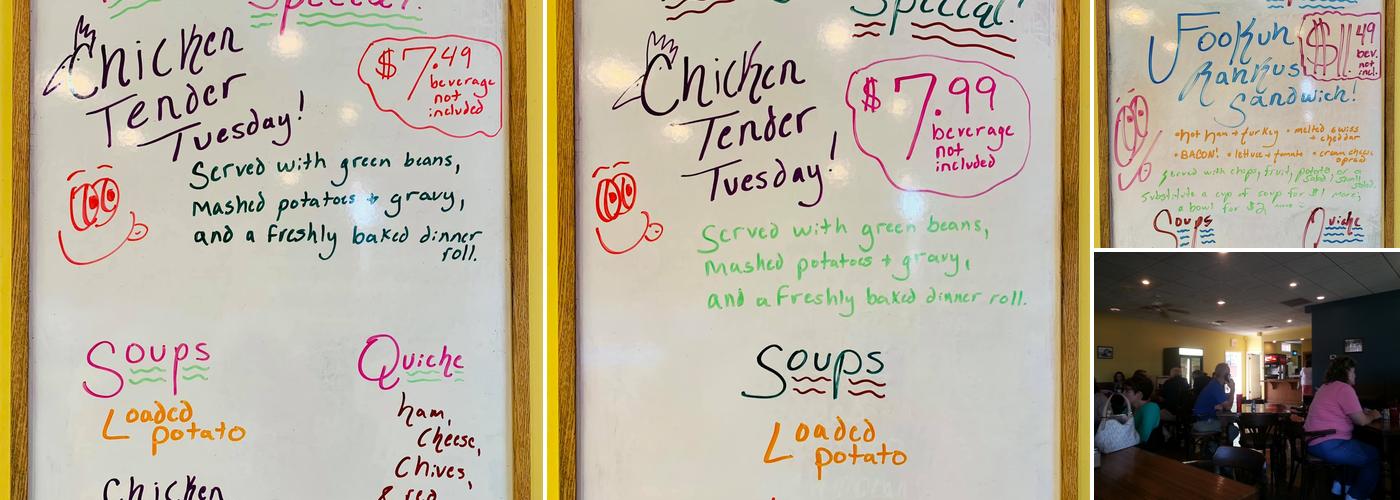 Special!
Chicken
Tender
Tuesday!
$7.49
beverage
not
included
Served with green beans,
mashed potatoes + gravy,
and a freshly baked dinner
roll.
Soups
Loaded
potato
Chicken
Quiche
ham,
cheese,
Chives,
& red
Special!
Chicken
Tender
Tuesday!
$7.99
beverage
not
included
Served with green beans,
mashed potatoes + gravy,
and a freshly baked dinner roll.
Soups
Loaded
potato
Fookuh
Rankus
Sandwich!
$11.49
bev.
not
incl.
• hot ham + turkey • melted swiss
+ cheddar
• BACON! • lettuce + tomato • cream cheese
spread
Served with chips, fruit, potato salad, or a small
salad.
Substitute a cup of soup for $1 more,
a bowl for $2 more
Soups
Quiche